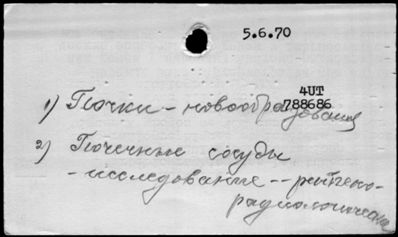 5.6.70
4UT
788686
1) Почки - новообразования
2) Почечные сосуды
- исследование -- рентгено-
радиологическое